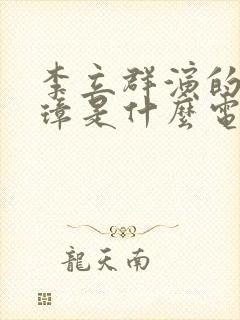 李立群演的
璋是什麼電
龍天南